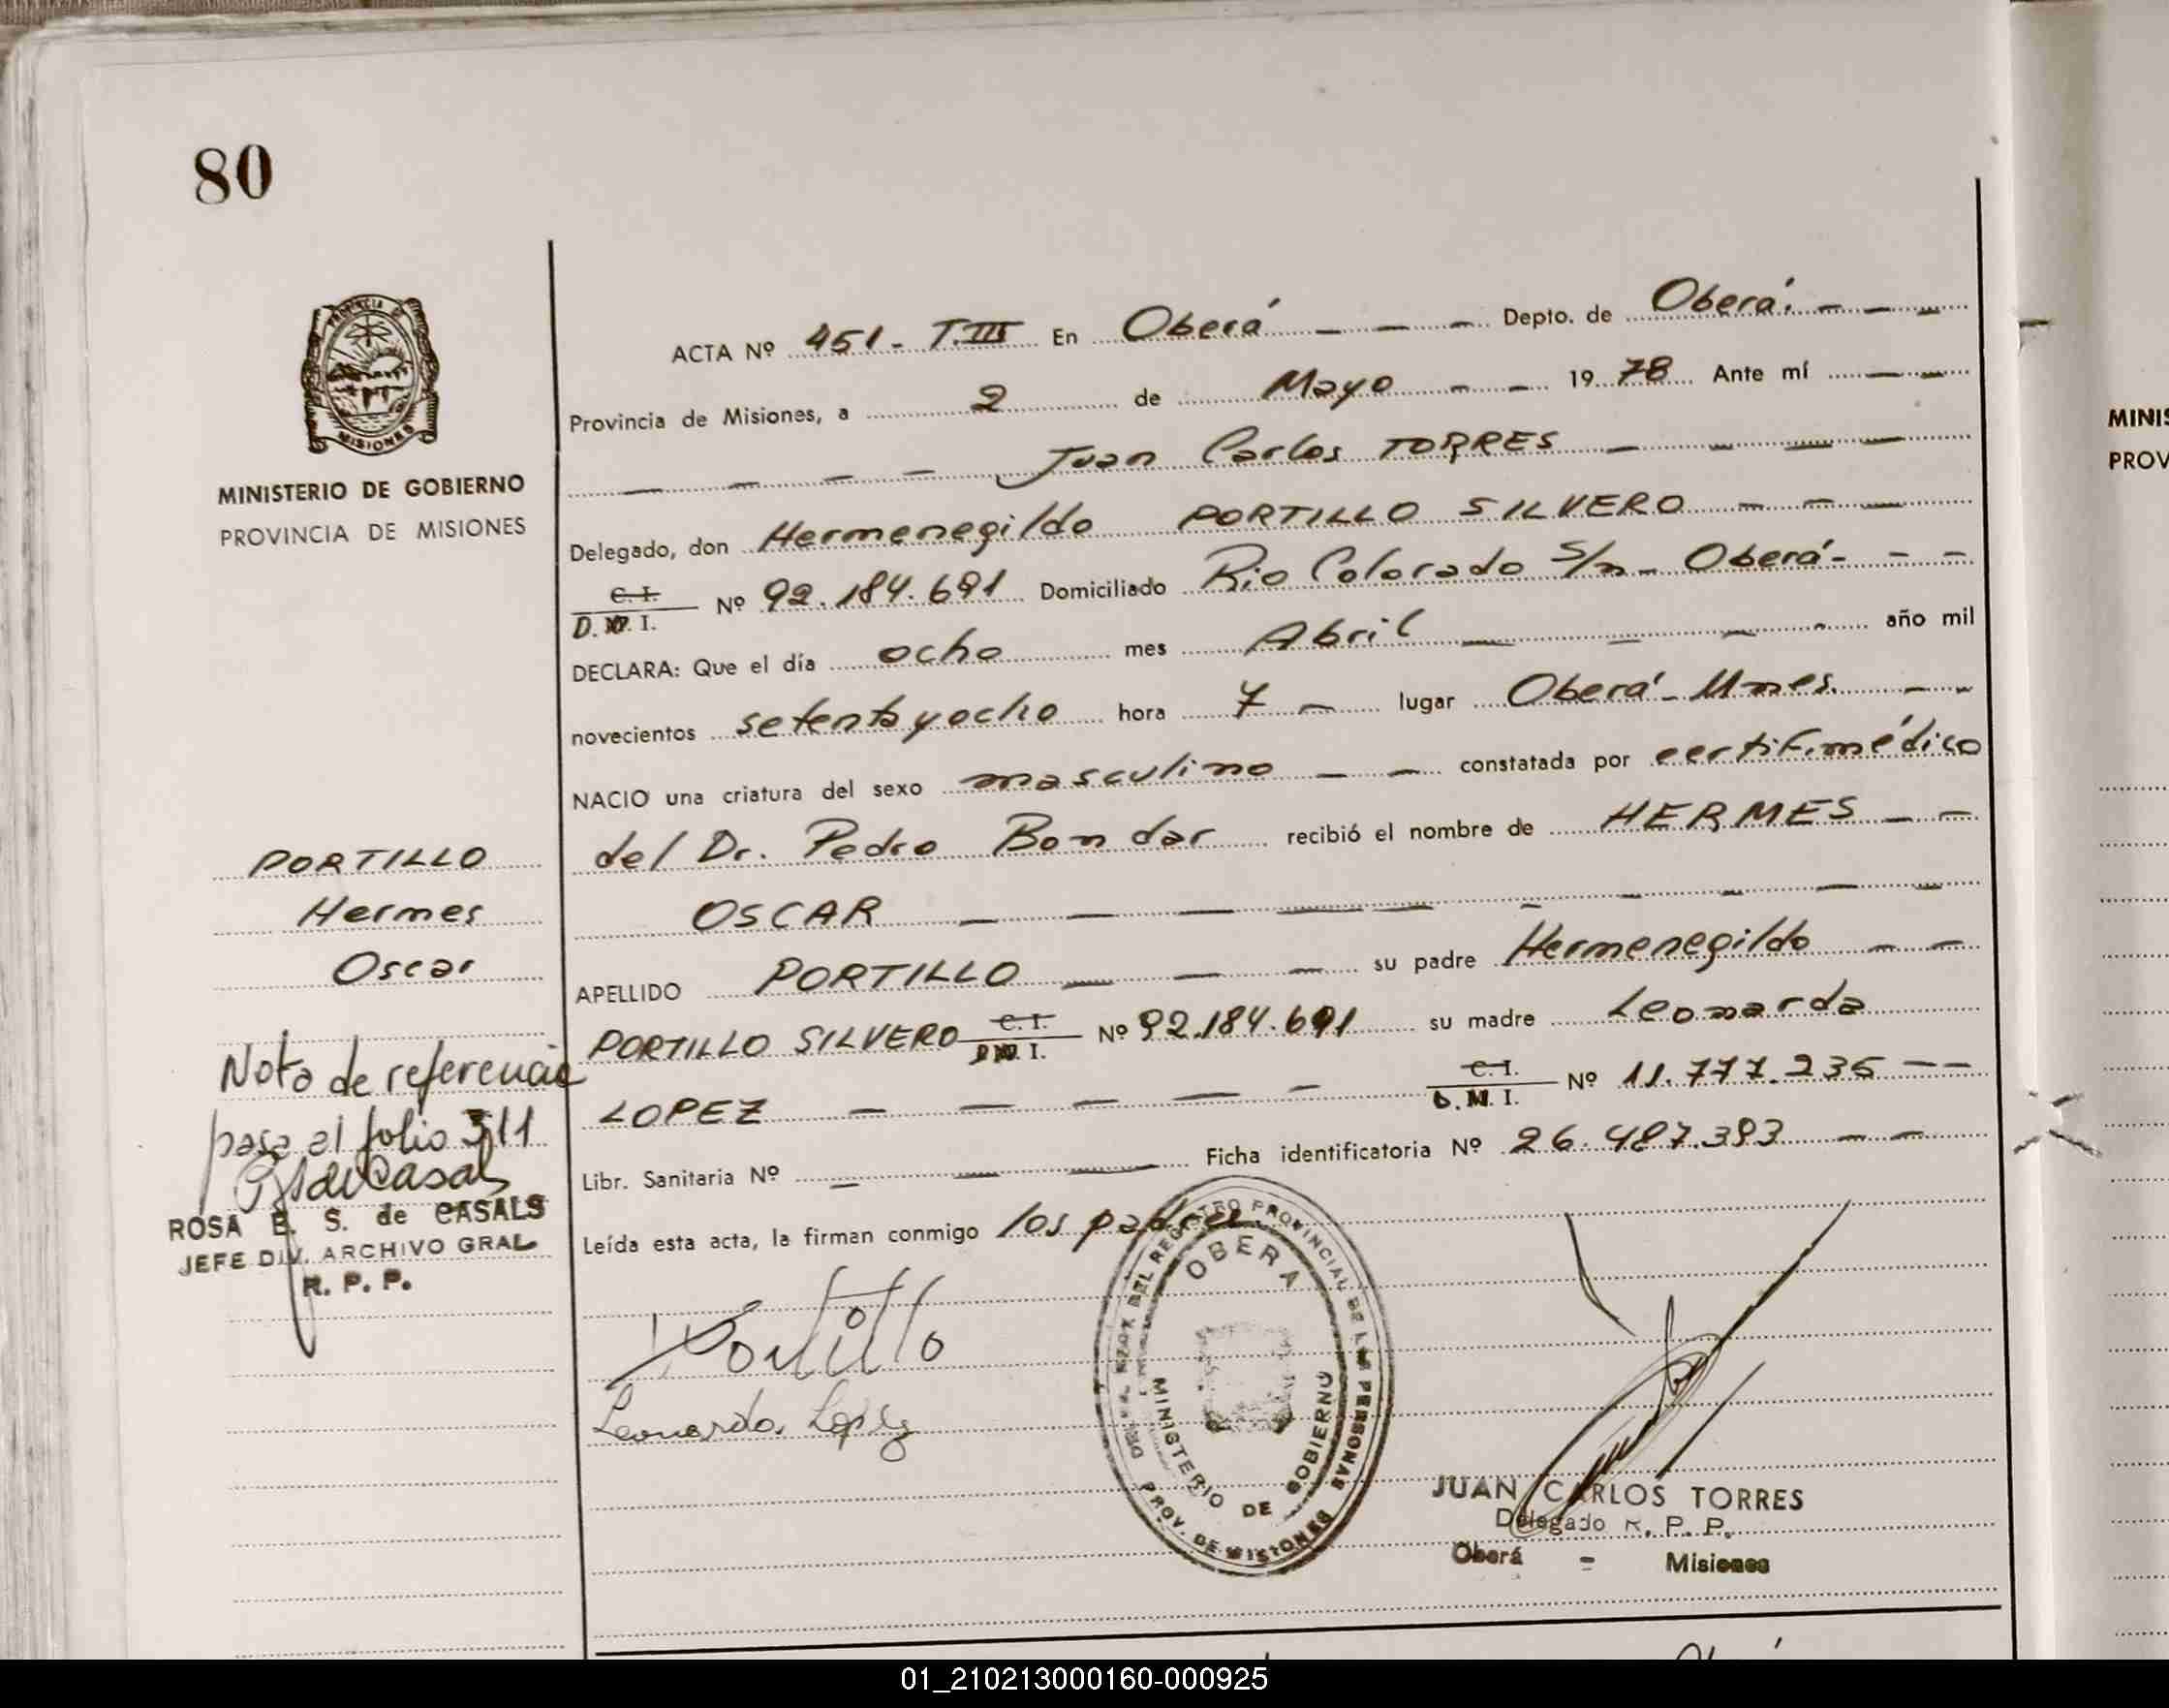 80
PROVINCIA DE
MISIONES
MINISTERIO DE GOBIERNO
PROVINCIA DE MISIONES
PORTILLO
Hermes
Oscar
Nota de referencia
pasa al folio 311
ROSA E. S. de CASALS
JEFE DIV. ARCHIVO GRAL
R. P. P.
ACTA Nº 451 - T.III En Oberá Depto. de Oberá.
Provincia de Misiones, a 2 de Mayo 1978 Ante mí
Juan Carlos TORRES
Delegado, don Hermenegildo PORTILLO SILVERO
C. I.
D. N. I. Nº 92.184.691 Domiciliado Rio Colorado S/n - Oberá
DECLARA: Que el día ocho mes Abril año mil
novecientos setenta y ocho hora 7 lugar Oberá - Mnes.
NACIO una criatura del sexo masculino constatada por certif. médico
del Dr. Pedro Bondar recibió el nombre de HERMES
OSCAR
APELLIDO PORTILLO su padre Hermenegildo
PORTILLO SILVERO C. I. D.N. I. Nº 92.184.691 su madre Leonarda
LOPEZ C. I. D. N. I. Nº 11.777.236
Libr. Sanitaria Nº Ficha identificatoria Nº 26.487.393
Leída esta acta, la firman conmigo los padres.
Portillo
Leonarda López
REGISTRO PROVINCIAL DE LAS PERSONAS
OBERA
MINISTERIO DE GOBIERNO
PROV. DE MISIONES
JUAN CARLOS TORRES
Delegado R. P. P.
Oberá - Misiones
MINIS
PROV
01_210213000160-000925